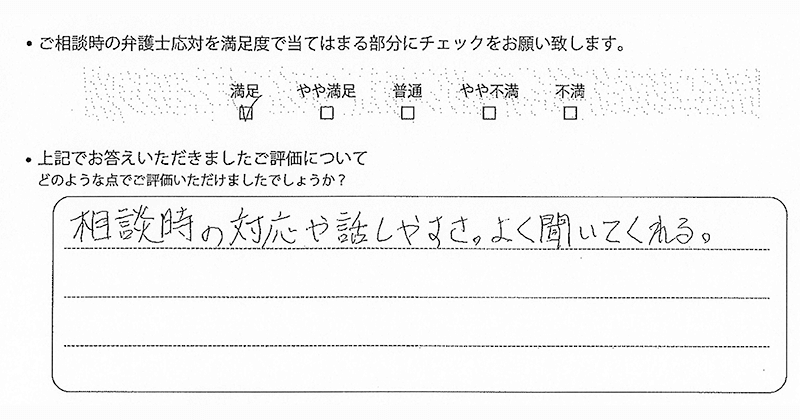 ・ご相談時の弁護士応対を満足度で当てはまる部分にチェックをお願い致します。
満足 やや満足 普通 やや不満 不満
☑ ☐ ☐ ☐ ☐
・上記でお答えいただきましたご評価について
どのような点でご評価いただけましたでしょうか？
相談時の対応や話しやすさ。よく聞いてくれる。